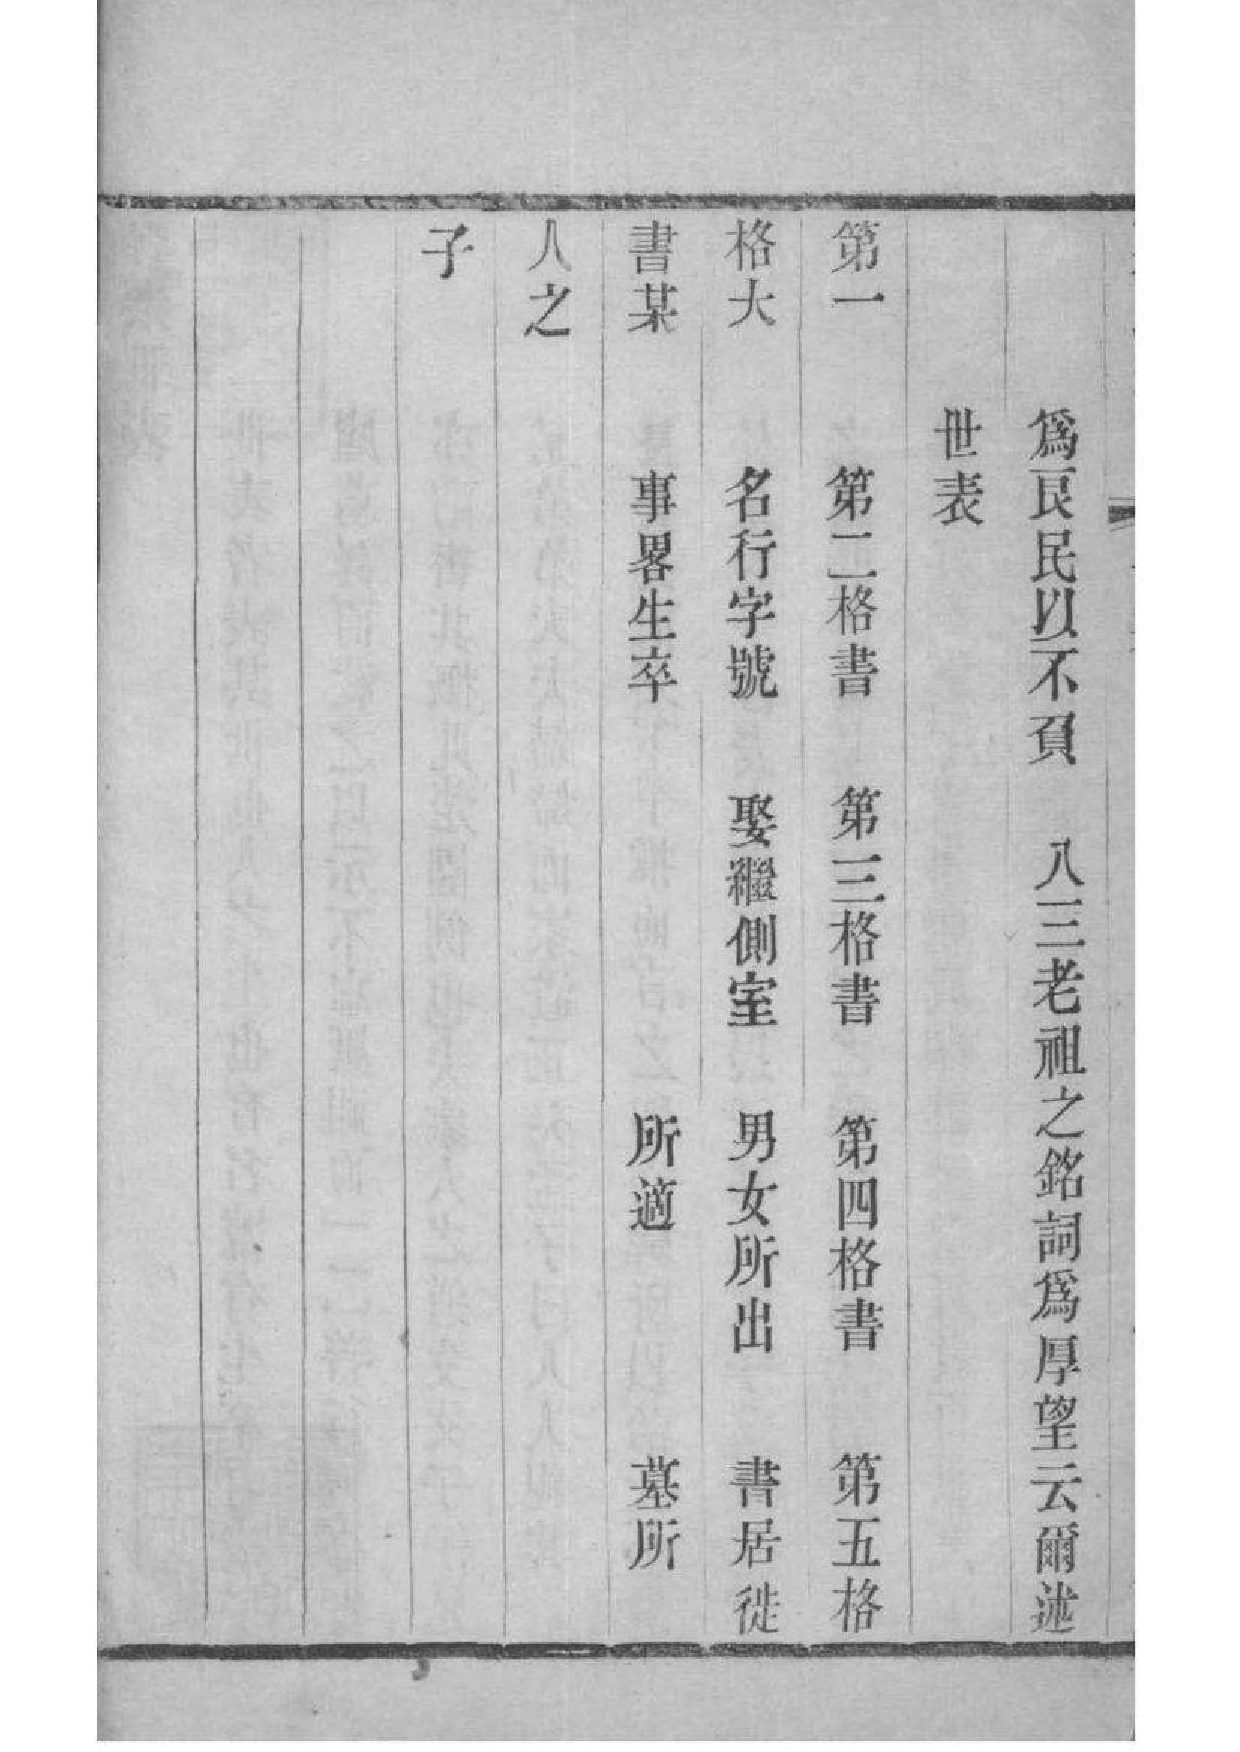 爲良民以不負　八三老祖之銘詞爲厚望云爾述
世表
第一　第二格書　第三格書　第四格書　第五格
格大　名行字號　娶繼側室　男女所出　書居徙
書某　事畧生卒　所適　墓所
人之
子